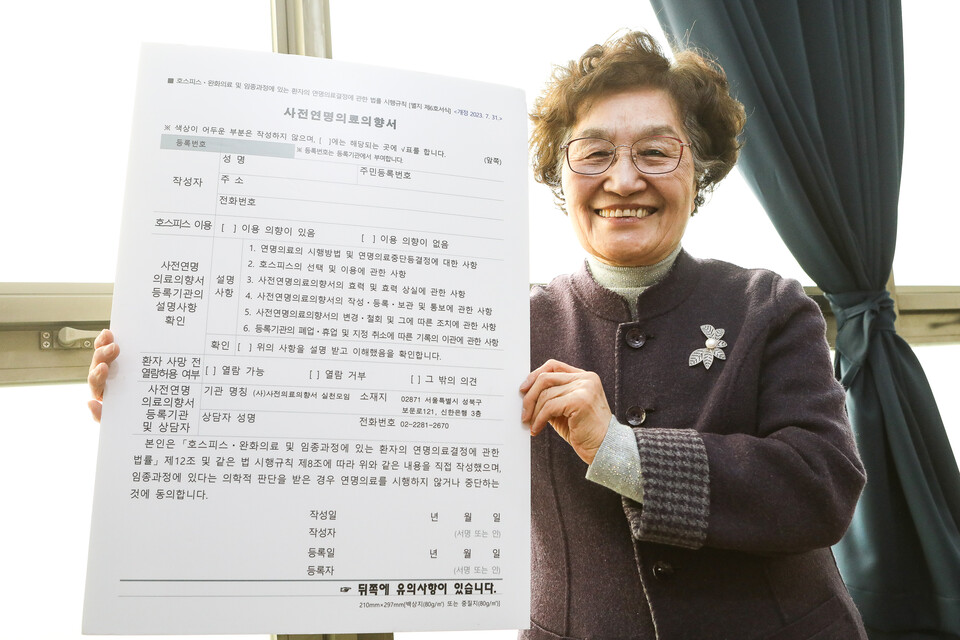 ■ 호스피스ㆍ완화의료 및 임종과정에 있는 환자의 연명의료결정에 관한 법률 시행규칙 [별지 제6호서식] <개정 2023. 7. 31.>
사전연명의료의향서
※ 색상이 어두운 부분은 작성하지 않으며, [ ]에는 해당되는 곳에 √표를 합니다. (앞쪽)
등록번호 ※ 등록번호는 등록기관에서 부여합니다.
작성자
성 명 주민등록번호
주 소
전화번호
호스피스 이용 [ ] 이용 의향이 있음 [ ] 이용 의향이 없음
사전연명
의료의향서
등록기관의
설명사항
확인
설명
사항
1. 연명의료의 시행방법 및 연명의료중단등결정에 대한 사항
2. 호스피스의 선택 및 이용에 관한 사항
3. 사전연명의료의향서의 효력 및 효력 상실에 관한 사항
4. 사전연명의료의향서의 작성ㆍ등록ㆍ보관 및 통보에 관한 사항
5. 사전연명의료의향서의 변경ㆍ철회 및 그에 따른 조치에 관한 사항
6. 등록기관의 폐업ㆍ휴업 및 지정 취소에 따른 기록의 이관에 관한 사항
확인 [ ] 위의 사항을 설명 받고 이해했음을 확인합니다.
환자 사망 전
열람허용 여부
[ ] 열람 가능 [ ] 열람 거부 [ ] 그 밖의 의견
사전연명
의료의향서
등록기관
및 상담자
기관 명칭 (사)사전의료의향서 실천모임 소재지 02871 서울특별시 성북구
보문로121, 신한은행 3층
상담자 성명 전화번호 02-2281-2670
본인은 「호스피스ㆍ완화의료 및 임종과정에 있는 환자의 연명의료결정에 관한
법률」 제12조 및 같은 법 시행규칙 제8조에 따라 위와 같은 내용을 직접 작성했으며,
임종과정에 있다는 의학적 판단을 받은 경우 연명의료를 시행하지 않거나 중단하는
것에 동의합니다.
작성일 년 월 일
작성자 (서명 또는 인)
등록일 년 월 일
등록자 (서명 또는 인)
☞ 뒤쪽에 유의사항이 있습니다.
210mm×297mm(백상지(80g/㎡) 또는 중질지(80g/㎡))